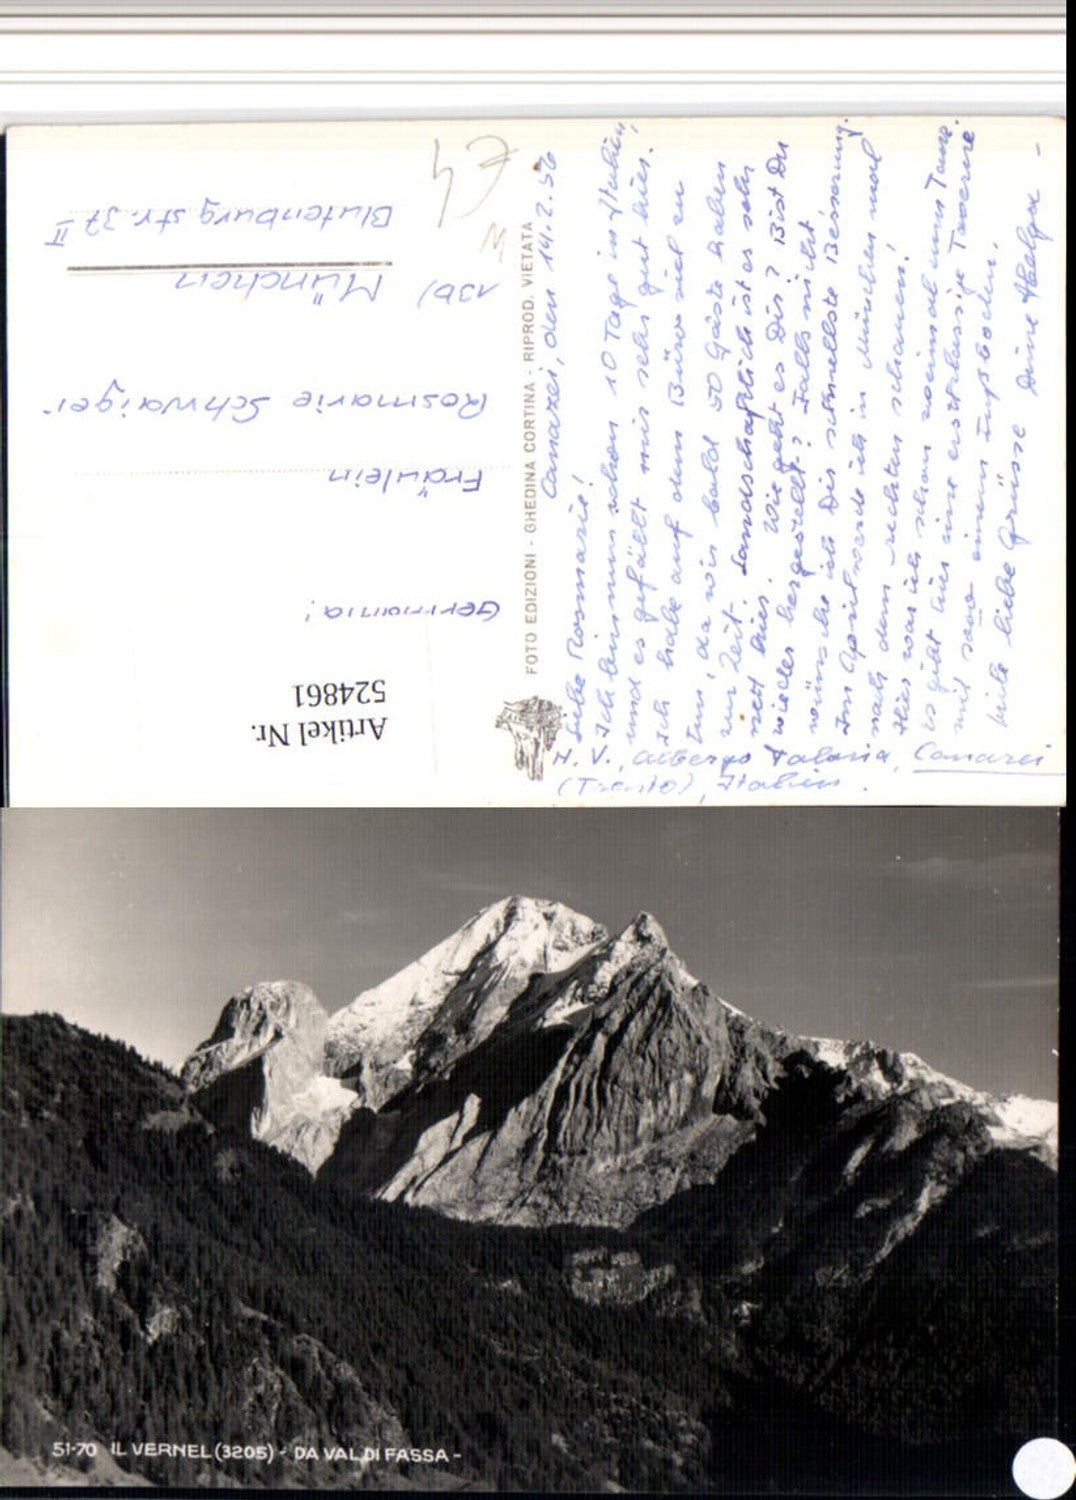 Canazei, den 14.2.56
Liebe Rosmarie!
Ich bin nun schon 10 Tage in Italien,
und es gefällt mir sehr gut hier.
Ich habe auf dem Büro viel zu
tun, da wir bald 50 Gäste haben
zur Zeit. Landschaftlich ist es sehr
nett hier. Wie geht es Dir? Bist Du
wieder hergestellt? Falls nicht
wünsche ich Dir schnellste Besserung.
Im April werde ich in München mal
nach dem rechten schauen!
Hier war ich schon zweimal zum Tanz.
Es gibt hier eine erstklassige Taverne
mit einem Fußboden.
Viele liebe Grüsse Deine Helga -
H. S., Albergo Faloria, Canazei
(Trento), Italien.
FOTO EDIZIONI - GHEDINA CORTINA - RIPROD. VIETATA
€4
Artikel Nr.
524861
Germania!
Fräulein
Rosmarie Schwaiger
13b) München
Blutenburgstr. 37 II
51-70 IL VERNEL (3205) - DA VAL DI FASSA -